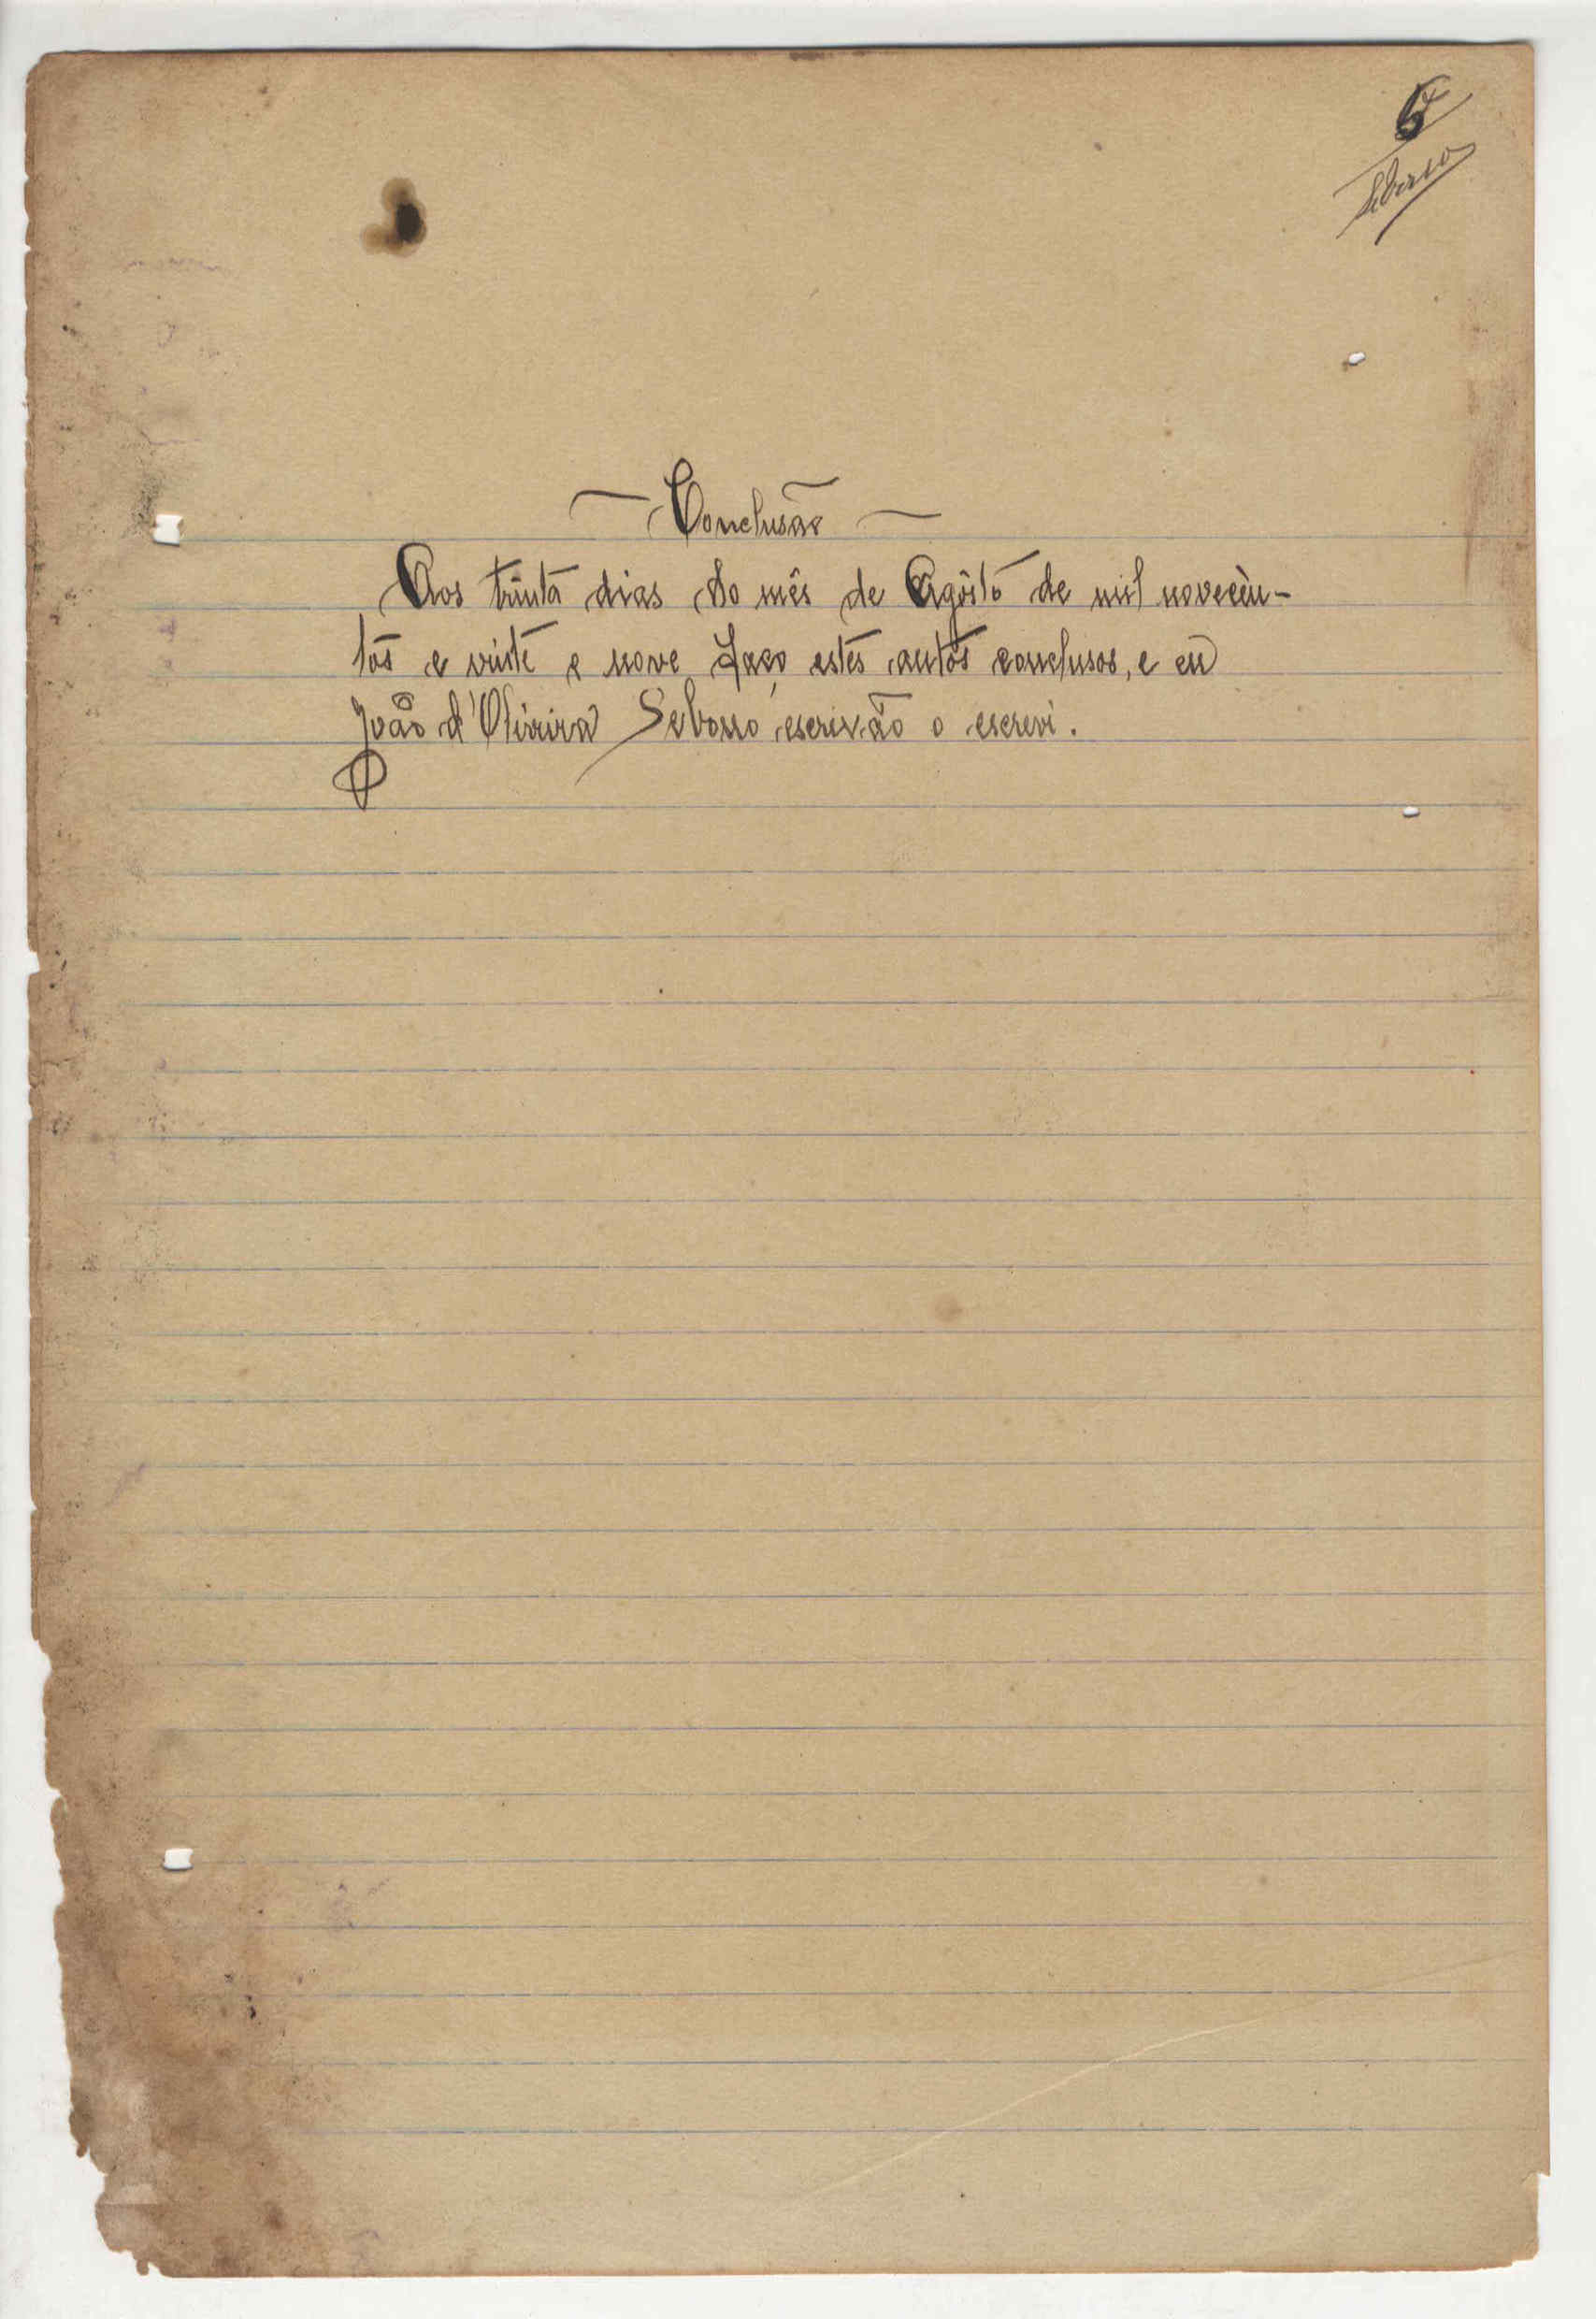 6
Conclusão
Aos trinta dias do mês de Agôsto de mil novecen-
tos e vinte e nove faço estes autos conclusos, e eu
João d'Oliveira escrivão o escrevi.